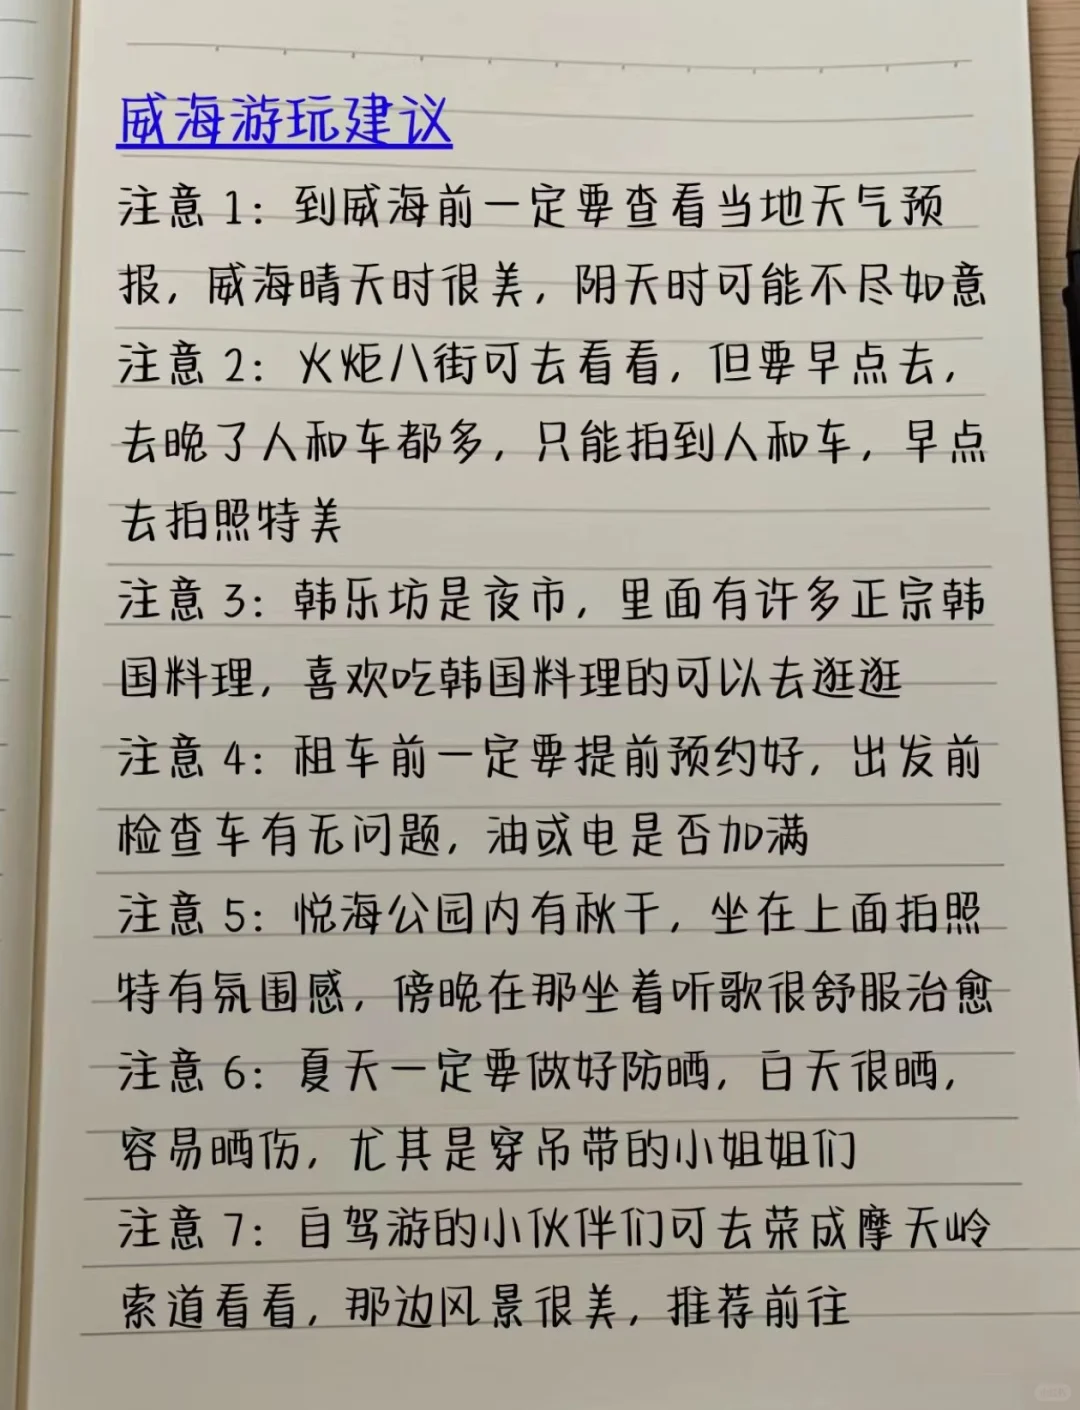 威海游玩建议
注意 1：到威海前一定要查看当地天气预
报，威海晴天时很美，阴天时可能不尽如意
注意 2：火炬八街可去看看，但要早点去，
去晚了人和车都多，只能拍到人和车，早点
去拍照特美
注意 3：韩乐坊是夜市，里面有许多正宗韩
国料理，喜欢吃韩国料理的可以去逛逛
注意 4：租车前一定要提前预约好，出发前
检查车有无问题，油或电是否加满
注意 5：悦海公园内有秋千，坐在上面拍照
特有氛围感，傍晚在那坐着听歌很舒服治愈
注意 6：夏天一定要做好防晒，白天很晒，
容易晒伤，尤其是穿吊带的小姐姐们
注意 7：自驾游的小伙伴们可去荣成摩天岭
索道看看，那边风景很美，推荐前往